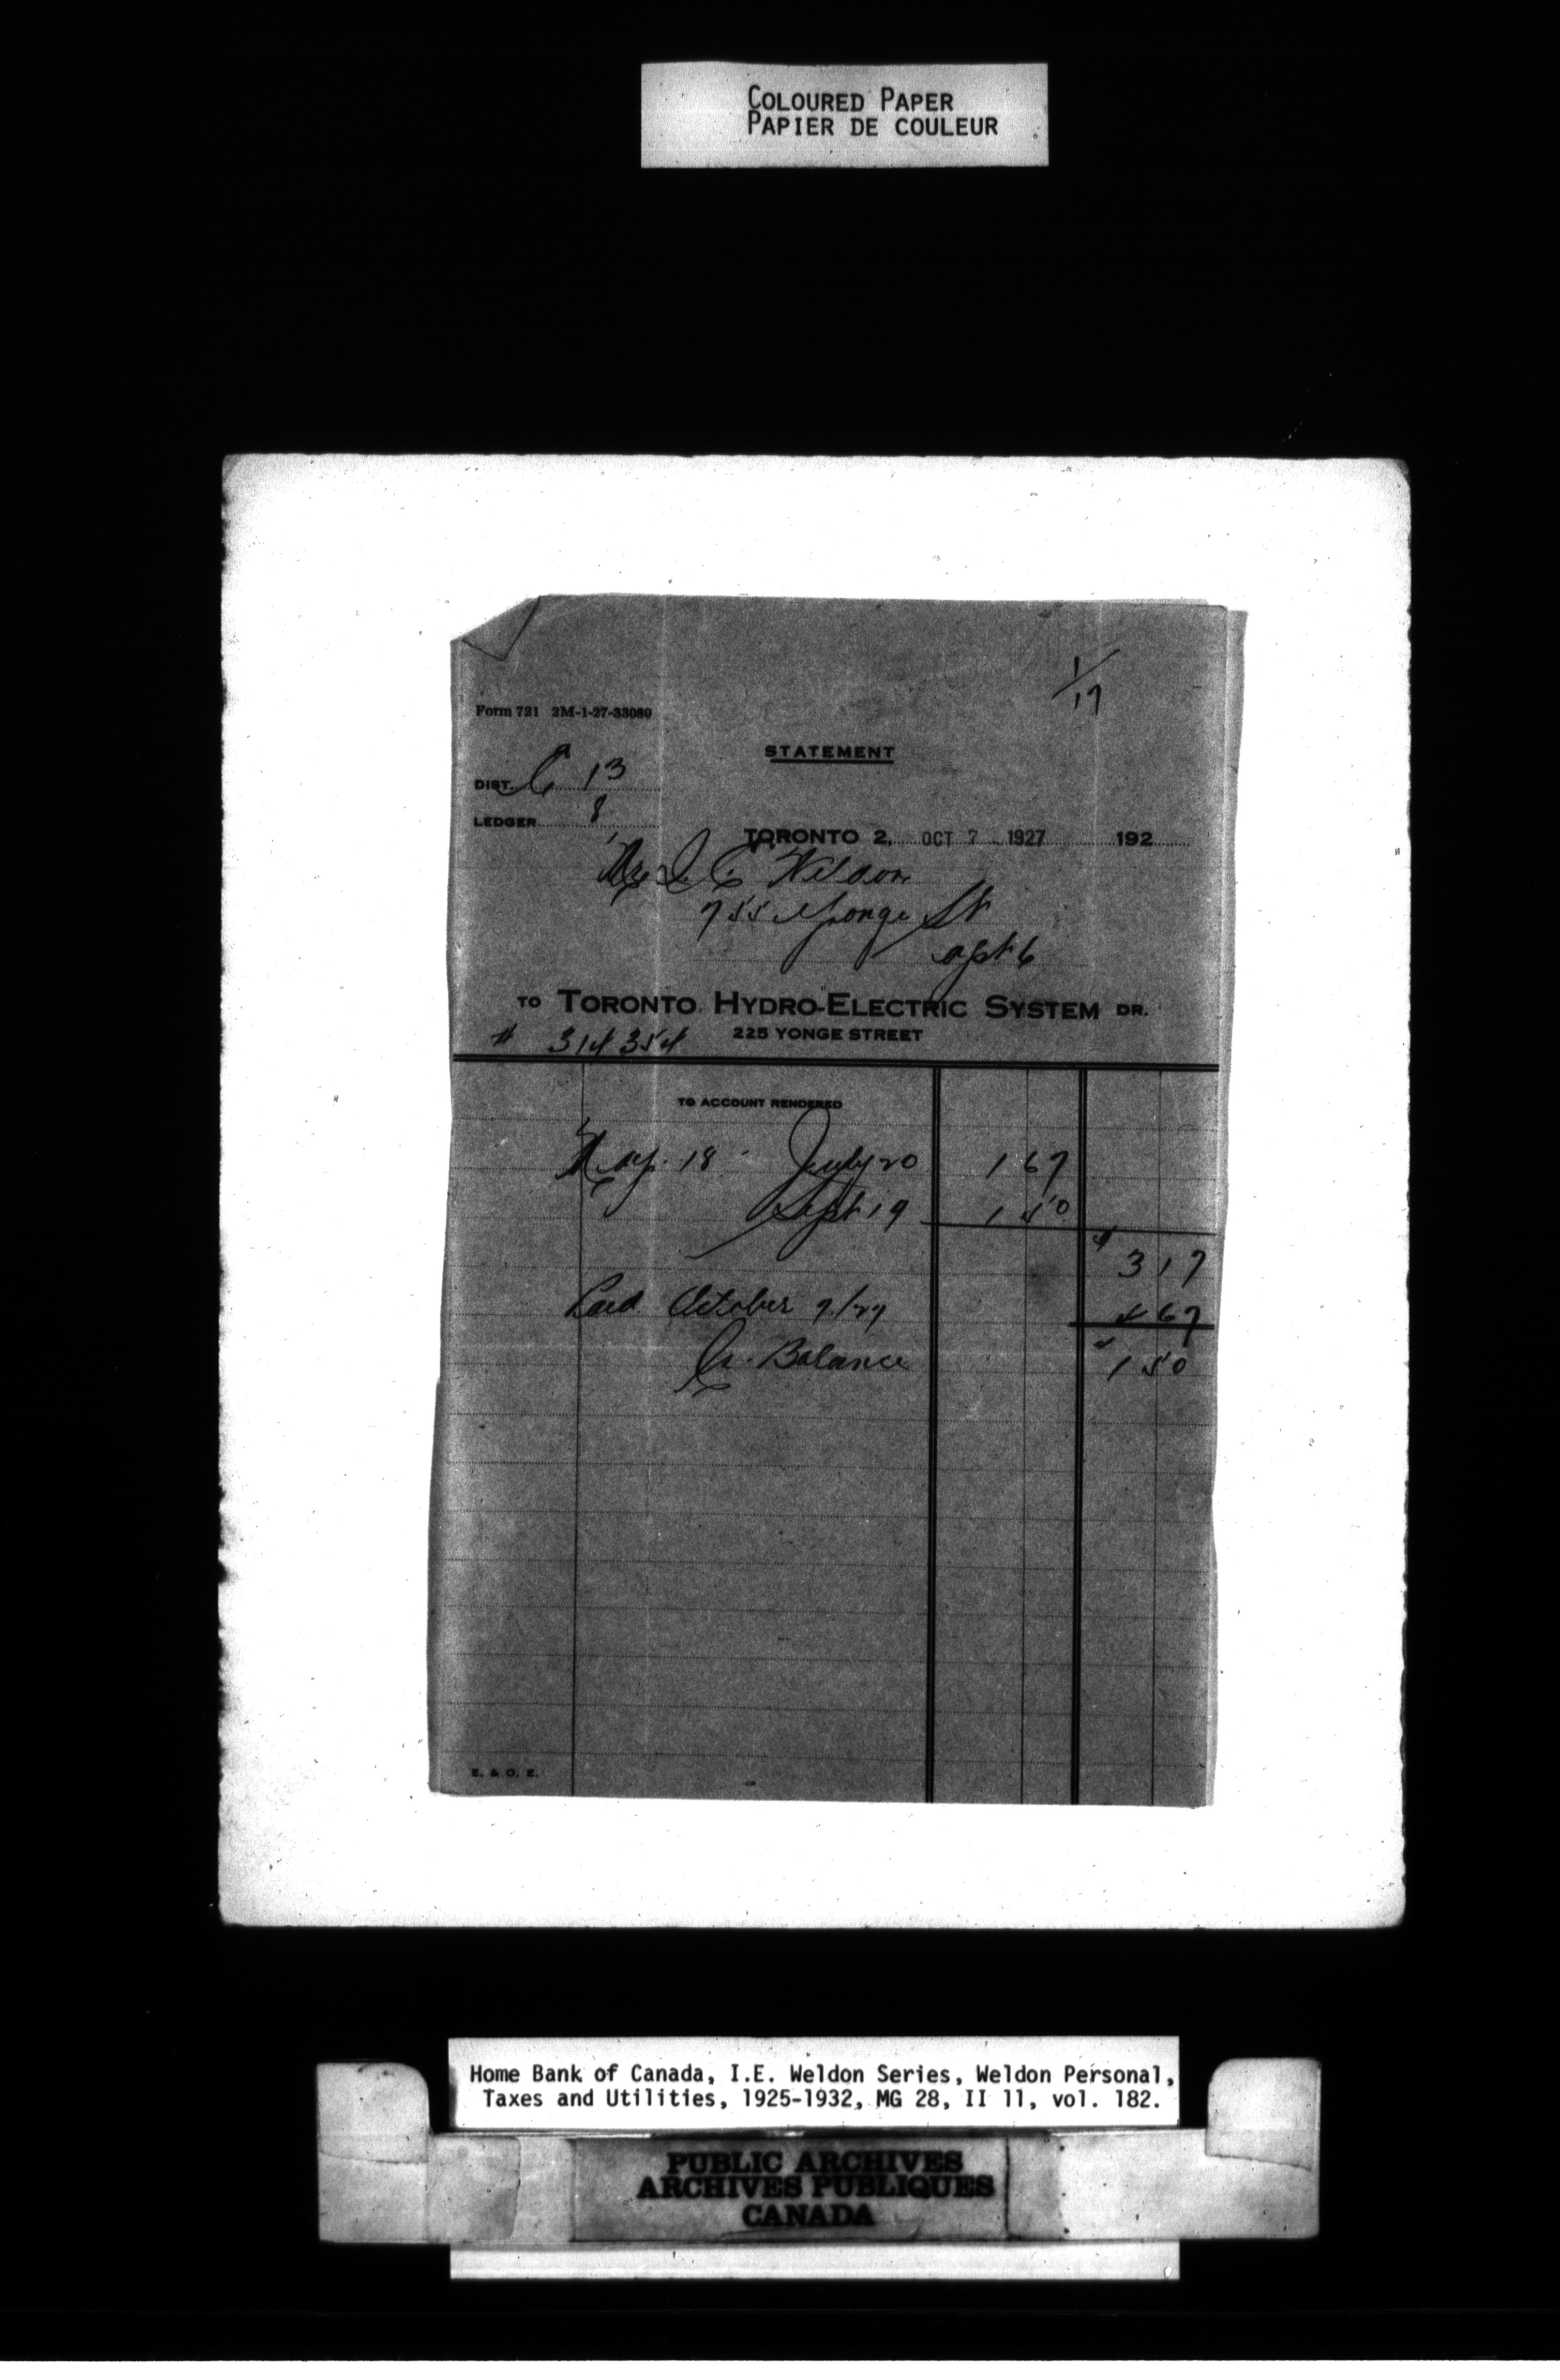 COLOURED PAPER
PAPIER DE COULEUR
1/17
Form 721 2M-1-27-33080
STATEMENT
DIST. C 13
LEDGER 8
TORONTO 2, OCT 7 1927 192
Mr I. E. Weldon
755 Yonge St
apt 6
TO TORONTO HYDRO-ELECTRIC SYSTEM DR.
# 314354 225 YONGE STREET
TO ACCOUNT RENDERED
May 18 - July 20 1 67
Sept 19 1 50
$ 3 17
Paid October 7/27 4 67
Cr. Balance $ 1 50
E. & O. E.
Home Bank of Canada, I.E. Weldon Series, Weldon Personal,
Taxes and Utilities, 1925-1932, MG 28, II 11, vol. 182.
PUBLIC ARCHIVES
ARCHIVES PUBLIQUES
CANADA